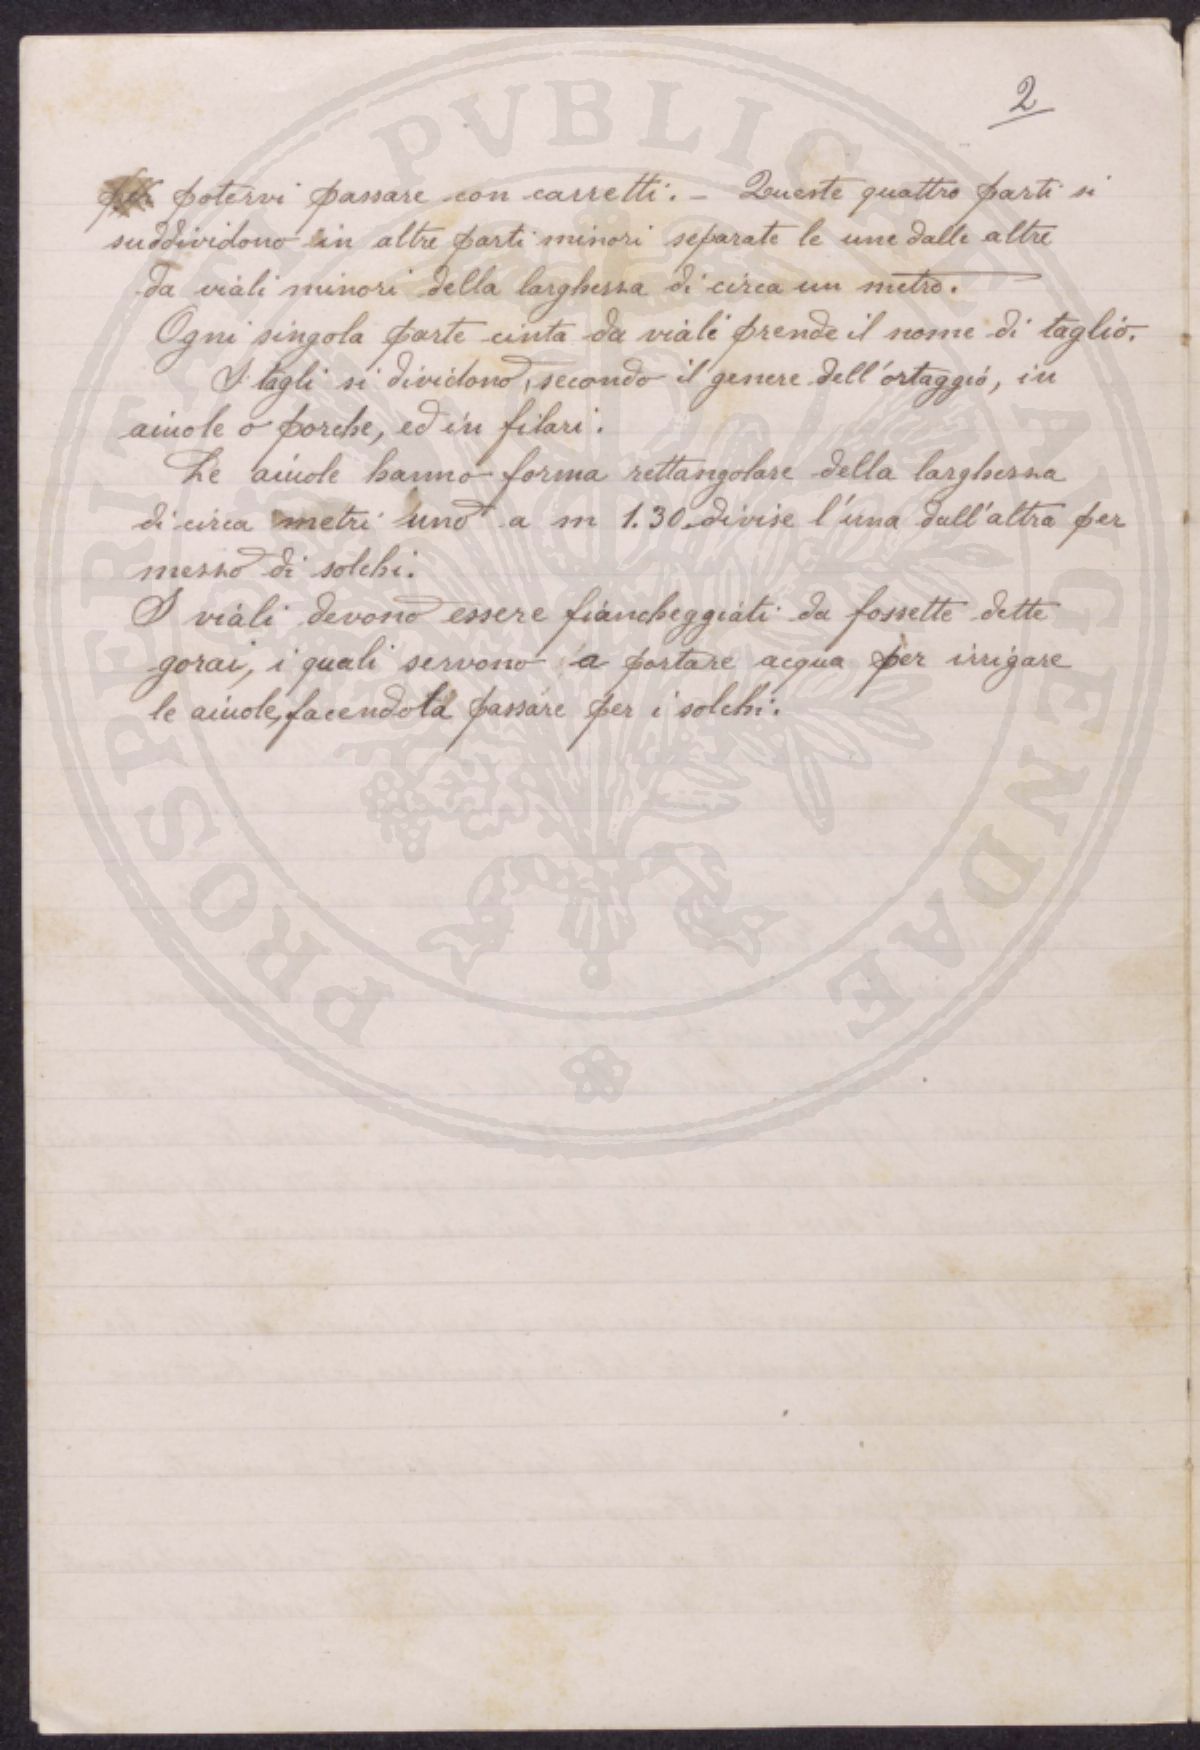 2
per potervi passare con carretti. – Queste quattro parti si
suddividono in altre parti minori separate le une dalle altre
da viali minori della larghezza di circa un metro.
Ogni singola parte cinta da viali prende il nome di taglio.
I tagli si dividono, secondo il genere dell'ortaggio, in
aiuole o porche, ed in filari.
Le aiuole hanno forma rettangolare della larghezza
di circa metri uno a m 1.30 divise l'una dall'altra per
mezzo di solchi.
I viali devono essere fiancheggiati da fossette dette
gorai, i quali servono a portare acqua per irrigare
le aiuole, facendola passare per i solchi.
PROSPERITATI PVBLICAE AVGENDAE